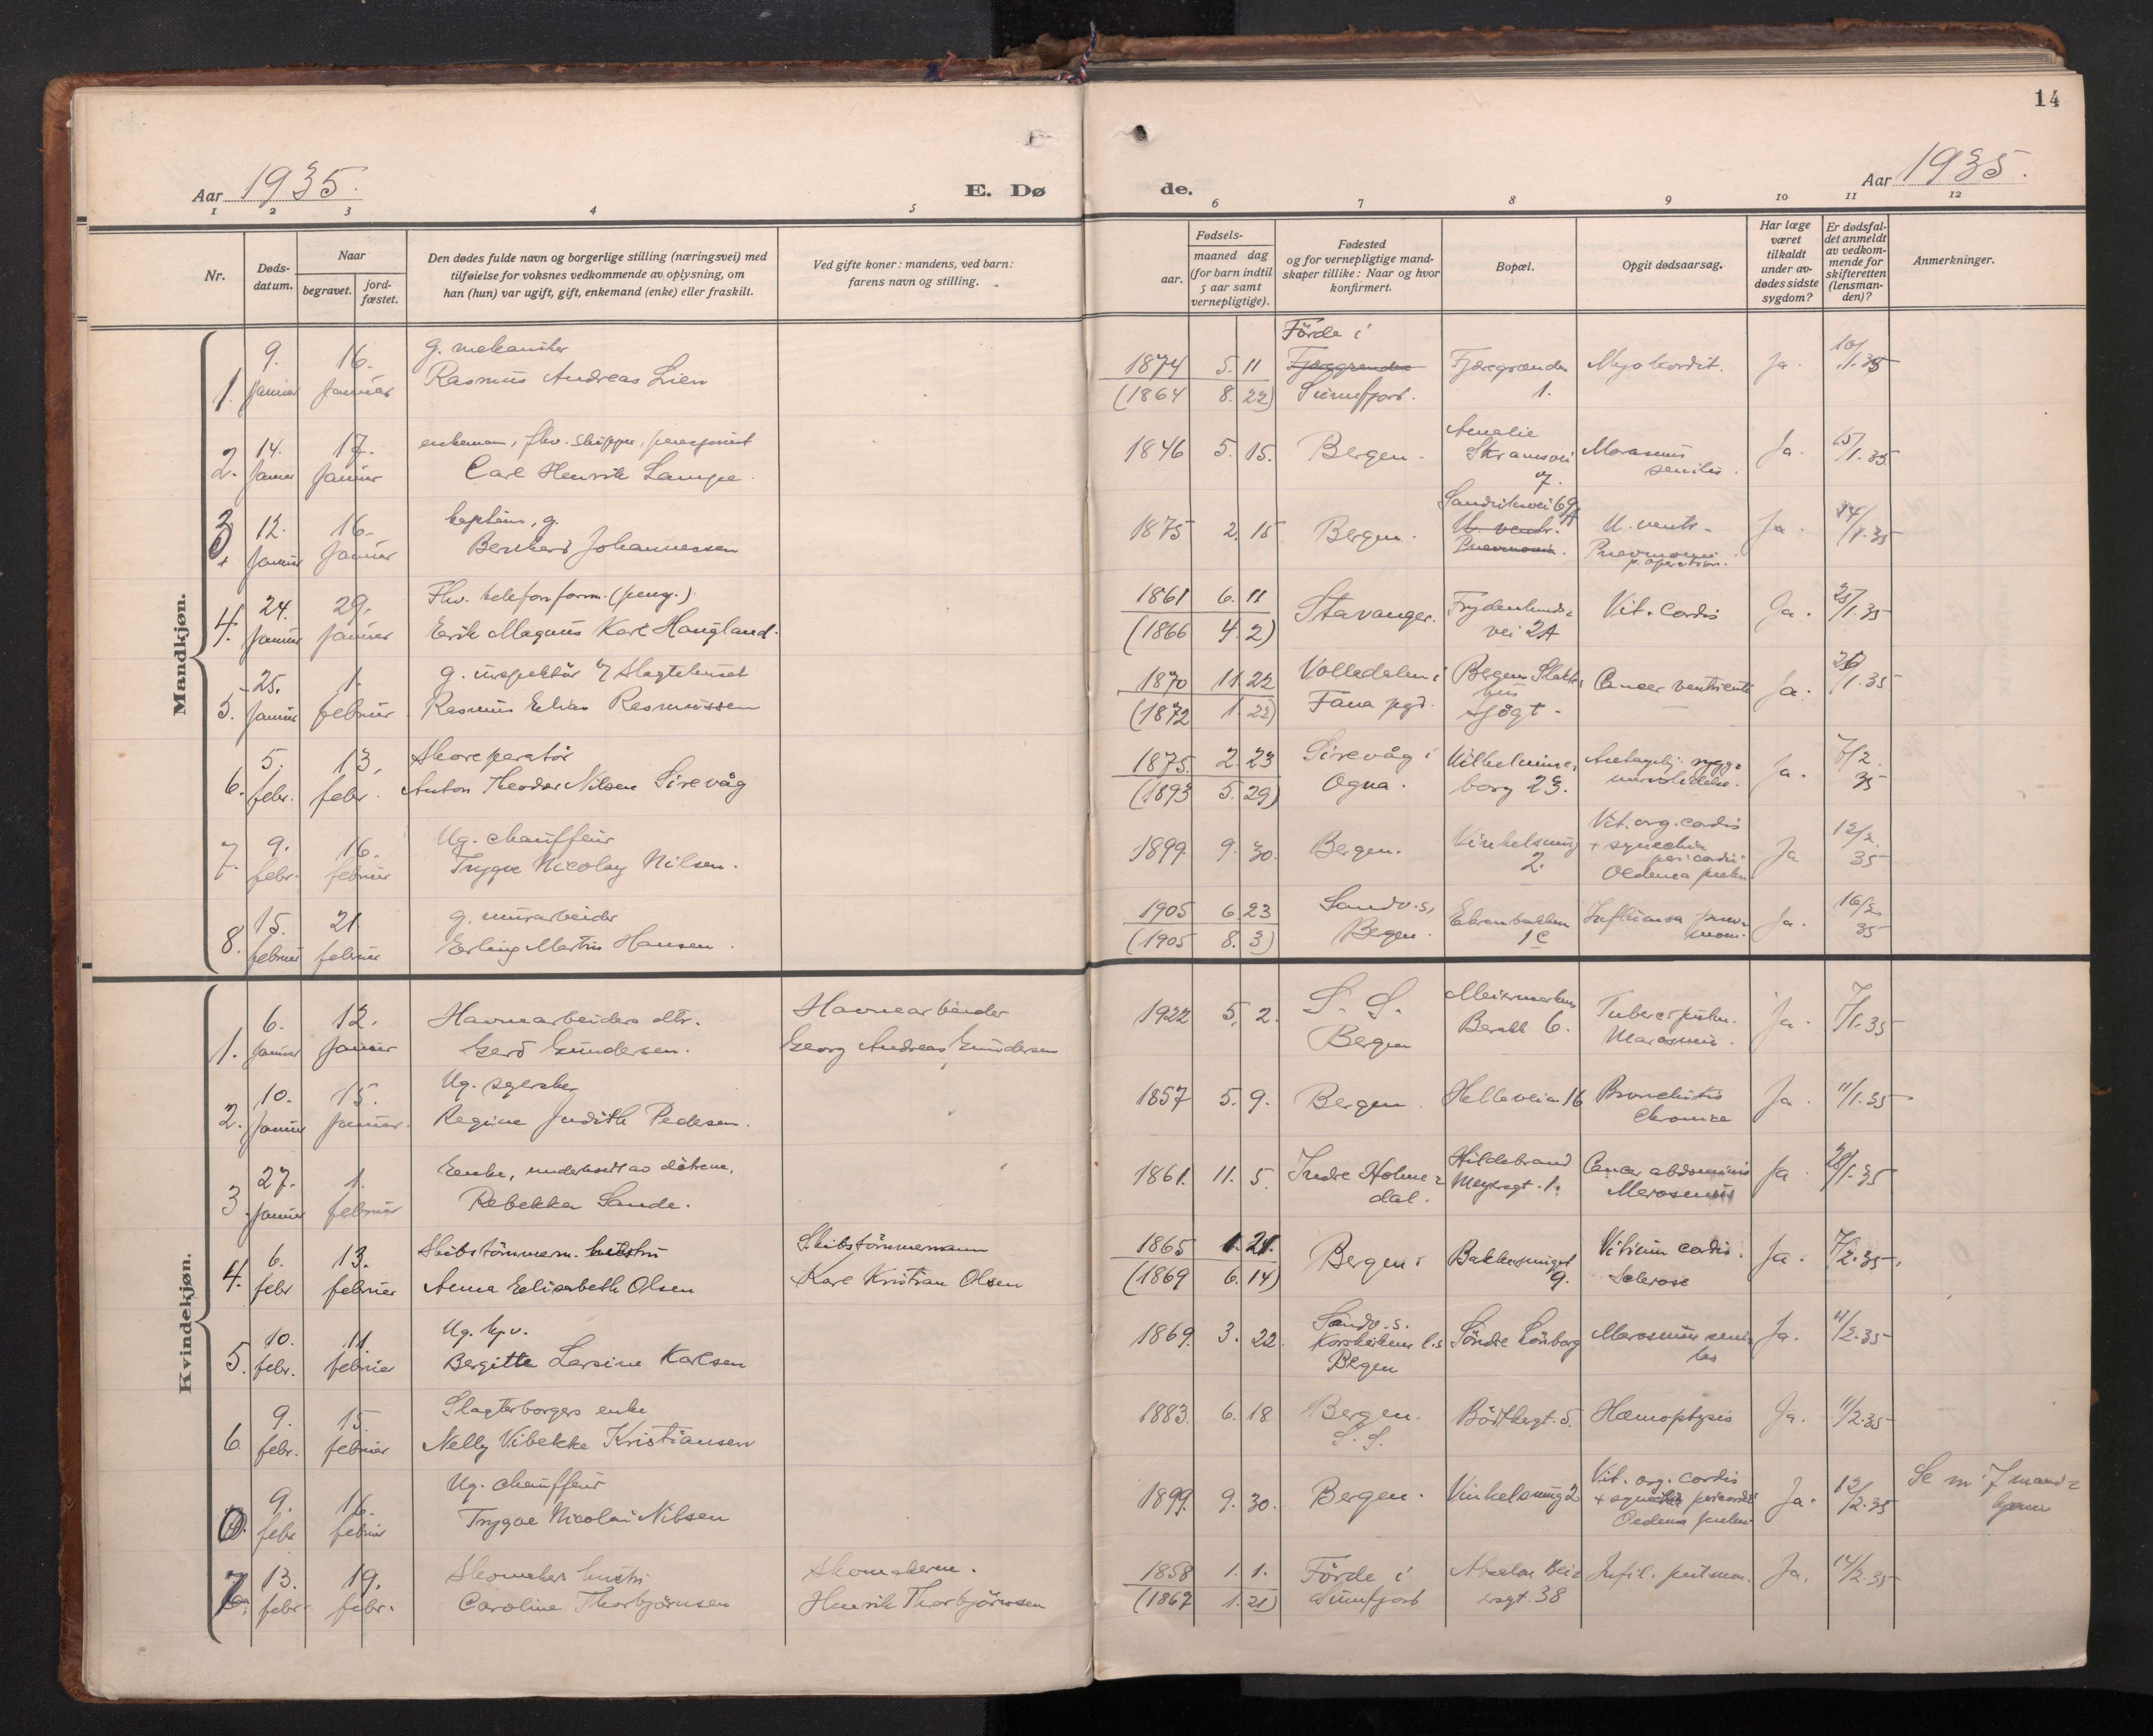 14
Aar 1935.
E. Dø
de.
Aar 1935.
1 2 3 4 5 6 7 8 9 10 11 12
Nr.
Døds-
datum.
Naar
begravet.
jord-
fæstet.
Den dødes fulde navn og borgerlige stilling (næringsvei) med
tilføielse for voksnes vedkommende av oplysning, om
han (hun) var ugift, gift, enkemand (enke) eller fraskilt.
Ved gifte koner: mandens, ved barn:
farens navn og stilling.
Fødsels-
aar.
maaned dag
(for barn indtil
5 aar samt
vernepligtige).
Fødested
og for vernepligtige mand-
skaper tillike: Naar og hvor
konfirmert.
Bopæl.
Opgit dødsaarsag.
Har læge
været
tilkaldt
under av-
dødes sidste
sygdom?
Er dødsfal-
det anmeldt
av vedkom-
mende for
skifteretten
(lensman-
den)?
Anmerkninger.
Mandkjøn.
1. 9. Januar 16. Januar
g. mekaniker
Rasmus Andreas Lien
1874 5. 11
(1864 8. 22)
Førde i
Sunnfjord.
1.
Myokardit. Ja. 10/1.35
2. 14. Januar 17. Januar
enkemann, fhv. skipper,
Carl Henrik Lampe.
1846 5. 15. Bergen.
Amalie
Skramsvei
7.
Marasmus
senilis. Ja. 15/1.35
3 12. Januar 16. Januar
kaptein, g.
Bernhard Johannessen
1875 2. 15 Bergen.
Sandviksvei 69A
U. ventr.
Pneumonia.
U. ventr.
Pneumoni
p. operation. Ja. 14/1.35
4. 24. Januar 29. Januar
Fhv. telefonform. (pens.)
Eerik Magnus Karl Haugland.
1861 6. 11
(1866 4. 2)
Stavanger.
Frydenlunds-
vei 2A
Vit. cordis Ja. 25/1.35
5. 25. Januar 1. februar
g. inspektør v/ Slagtehuset
Rasmus Elias Rasmussen
1870 11. 22
(1872 1. 22)
Fana pgd.
Bergens Slakte-
hus
Cancer ventriculi Ja. 26/1.35
6. 5. febr. 13. febr.
Skoreparatør
Anton Theodor Nilsen Sirevåg
1875. 2. 23
(1893 5. 29)
Sirevåg i
Ogna.
Wilhelmine-
borg 23.
Ja. 7/2. 35
7. 9. febr. 16. februar
Ug. chauffeur
Trygve Nicolay Nilsen.
1899. 9. 30. Bergen.
Vinkelsmug
2.
Vit. org. cordis
+ synechia
pericardii
Oedema pulm. Ja 12/2. 35
8. 15. februar 21. februar
g. murarbeider
Erling Martin Hansen.
1905 6. 23
(1905 8. 3)
Sandv. s.,
Bergen.
Ekrenbakken
1c
Influensa pneu-
moni. Ja. 16/2 35
Kvindekjøn.
1. 6. Januar 12. Januar
Havnearbeiders dtr.
Gerd Gundersen.
Havnearbeider
Georg Andreas Gundersen
1922 5. 2.
S. S.
Bergen
6.
Tuberc. pulm.
Marasmus. Ja. 7/1.35
2. 10. Januar 15. Januar
Ug. syerske
Regine Judith Pedersen.
1857 5. 9. Bergen. Helleveien 16
Bronchitis
chronica Ja. 11/1.35
3. 27. Januar 1. februar
Enke, underholdt av døtrene,
Rebekka Sande.
1861. 11. 5.
Indre Holme-
dal.
Hildebrand
Meyersgt. 1.
Cancer abdominis
Marasmus Ja. 28/1.35
4. 6. febr 13. februar
Skibstømmerm. hustru
Anna Elisabeth Olsen
Skibstømmermann
Karl Kristian Olsen
1865 1. 21.
(1869 6. 14)
Bergen
Bakkesmuget
9.
Vitium cordis.
Sclerose Ja. 7/2.35.
5. 10. febr. 11. februar
Ug. hpv.
Bergitte Larsine Karlsen
1869. 3. 22.
Sandv. s.
Korskirkens l.s
Bergen
Søndre Lønborg
Marasmus seni-
lis Ja. 11/2.35
6. 9. febr. 15. februar
Slagterborgers enke
Nelly Vibekke Kristiansen
1883. 6. 18.
Bergen.
S. S.
Bødtkersgt. 5. Hæmoptysis Ja. 11/2.35
0. 9. febr 16. februar
Ug. chauffeur
Trygve Nicolai Nilsen
1899. 9. 30. Bergen. Vinkelsmug 2
Vit. org. cordis
+ synechia pericardii
Oedema pulm. Ja. 12/2.35
Se nr. 7 mand-
kjønn
7. 13. febr. 19. febr.
Skomakers hustru
Caroline Thorbjørnsen
Skomakerm.
Henrik Thorbjørnsen
1858 1. 1.
(1867 1. 21)
Førde i
Sunnfjord
Absalon Bei-
ersgt. 38
Ja. 14/2.35